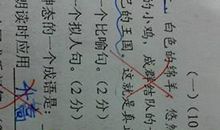 (一)(10
白色的绵羊,悠然
的小鸡,成群结队的
己的王国。这就是真
一个比喻句。(2分)
一个拟人句。(2分)
神态的一个成语是:
朗读时应用